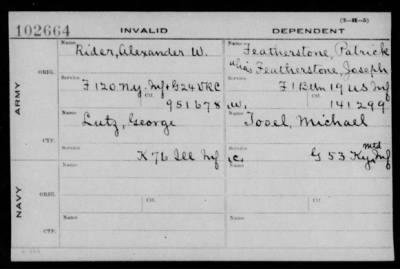 (3-111-5)
102664 INVALID DEPENDENT
Name Name
Rider, Alexander W. Featherstone, Patrick
alias Featherstone, Joseph
ORIG. Service Service
F 120 N.Y. Inf, G 24 VRC F 1 Btn 19 U S Inf
Ctf. Ctf.
951678 W. 141299
ARMY
Name Name
Lutz, George Tooel, Michael
CTF. Service Service
K 76 Ill Inf C. G 53 Ky Mtd Inf
NAVY
Name Name
ORIG. Service Ctf. Service Ctf.
Name Name
CTF. Service Service